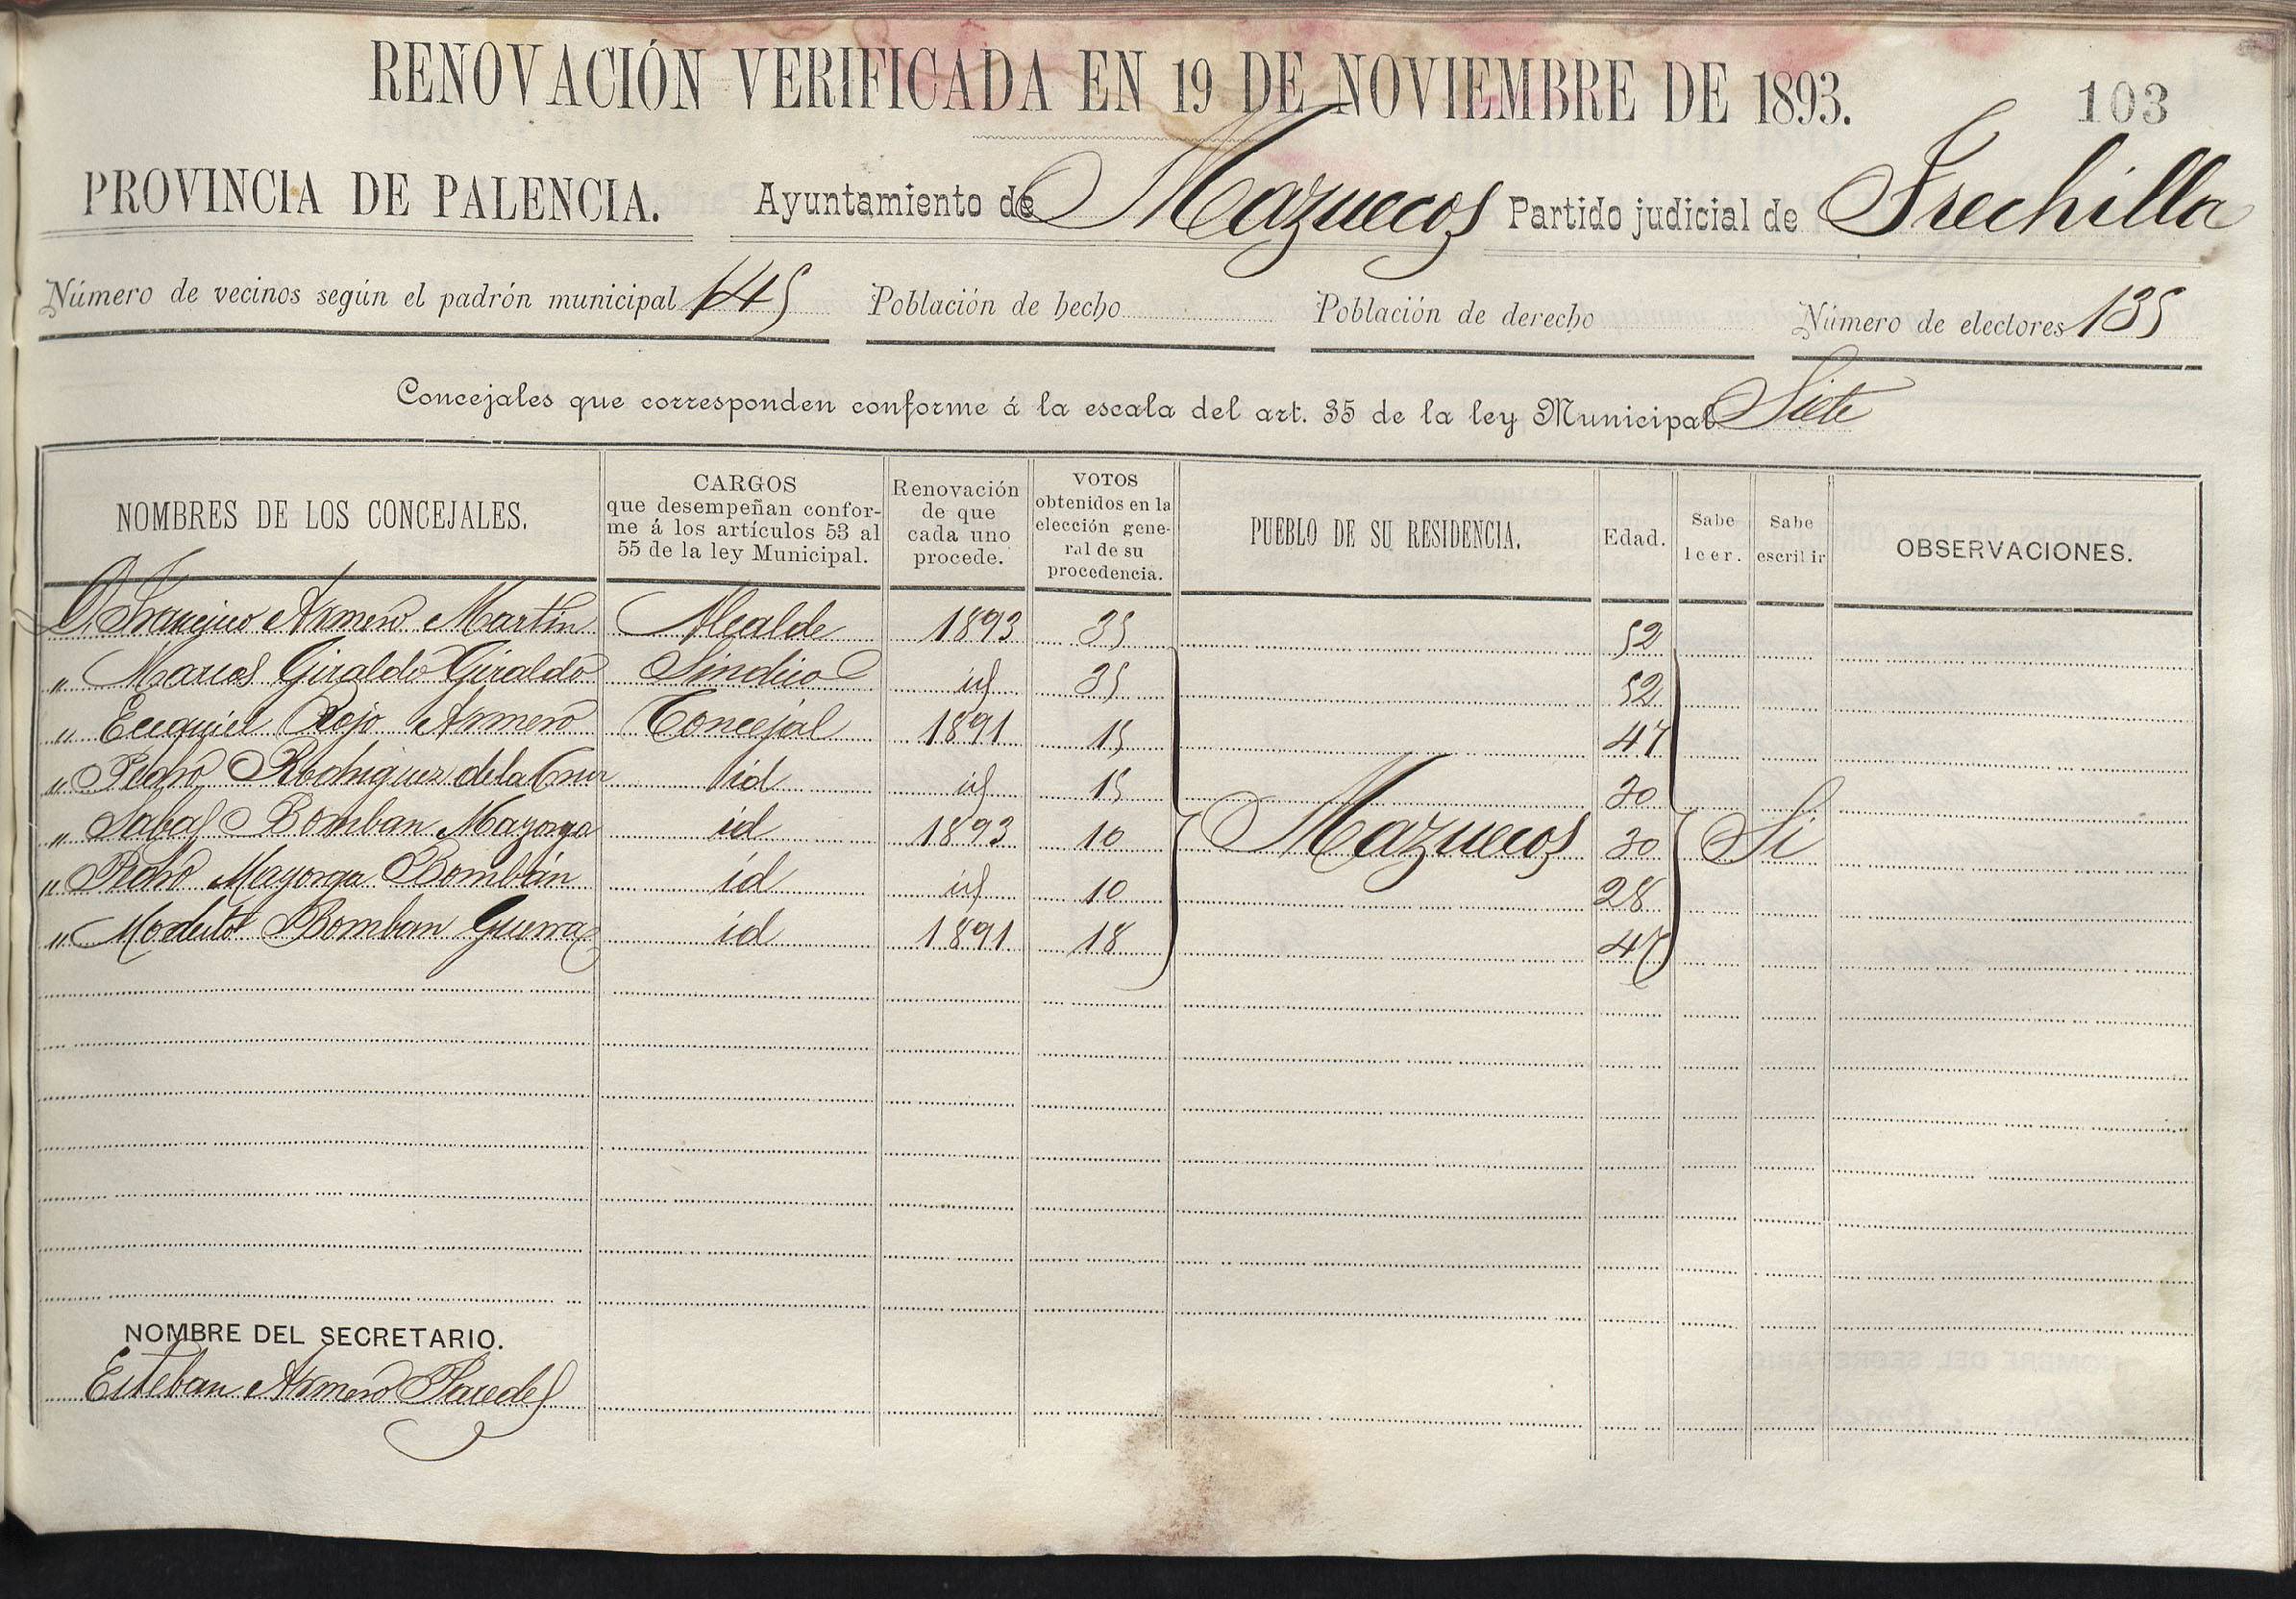 RENOVACIÓN VERIFICADA EN 19 DE NOVIEMBRE DE 1893. 103
PROVINCIA DE PALENCIA. Ayuntamiento de Mazuecos Partido judicial de Frechilla
Número de vecinos según el padrón municipal 145 Población de hecho Población de derecho Número de electores 135
Concejales que corresponden conforme á la escala del art. 35 de la ley Municipal Siete
NOMBRES DE LOS CONCEJALES. CARGOS que desempeñan conforme á los artículos 53 al 55 de la ley Municipal. Renovación de que cada uno procede. VOTOS obtenidos en la elección general de su procedencia. PUEBLO DE SU RESIDENCIA. Edad. Sabe leer. Sabe escribir OBSERVACIONES.
D. Francisco Armero Martin Alcalde 1893 35 52
" Marcos Giraldo Giraldo Sindico id 35 52
" Ecequiel Rojo Armero Concejal 1891 15 47
" Pedro Rodriguez de la Cruz id id 15 30
" Sabas Bomban Mayorga id 1893 10 Mazuecos 30 Si
" Pedro Mayorga Bombán id id 10 28
" Modesto Bomban Guerra id 1891 18 47
NOMBRE DEL SECRETARIO.
Esteban Armero Paredes